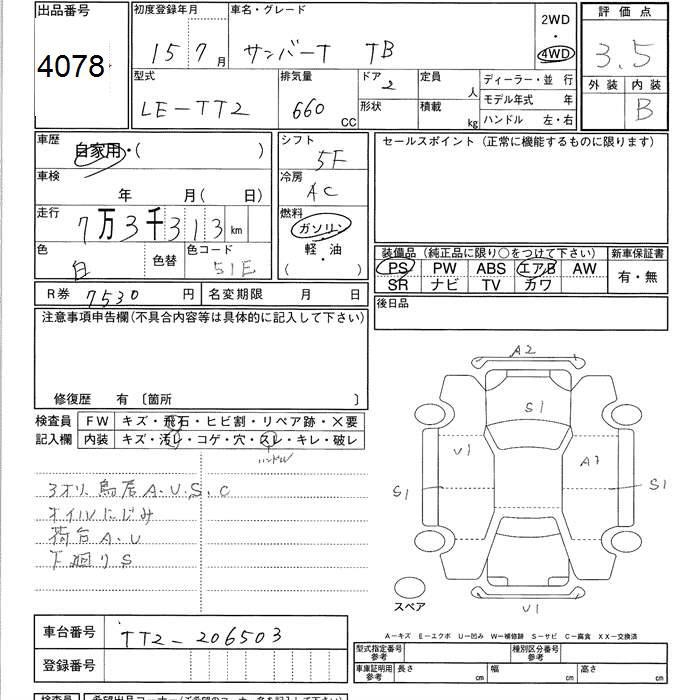 出品番号 初度登録年月 車名・グレード 2WD 評価点
4078 15 7月 サンバーT TB 4WD 3.5
型式 排気量 ドア 2 定員 人 ディーラー・並 行 外装 内装
LE-TT2 660 CC 形状 積載 kg モデル年式 年 B
ハンドル 左・右
車歴 自家用・( ) シフト 5F セールスポイント(正常に機能するものに限ります)
車検 年 月( 日) 冷房 AC
走行 7万3千313km 燃料 ガソリン
軽・油
( )
色 白 色替 色コード 51E
装備品(純正品に限り○をつけて下さい) 新車保証書
PS PW ABS エアB AW 有・無
SR ナビ TV カワ
R券 7530円 名変期限 月 日 後日品
注意事項申告欄(不具合内容等は具体的に記入して下さい)
修復歴 有 〔箇所 〕
検査員 FW キズ・飛石・ヒビ割・リペア跡・×要
記入欄 内装 キズ・汚レ・コゲ・穴・スレ・キレ・破レ
ハンドル
3オリ 鳥居A.U.S.C
オイルにじみ
荷台A.U
下廻りS
A2
S1
U1 A7
S1 S1
U1
スペア
A-キズ E-エクボ U-凹み W-補修跡 S-サビ C-腐食 XX-交換済
車台番号 TT2-206503
登録番号
型式指定番号 参考 種別区分番号 参考
車庫証明用 参考 長さ cm 幅 cm 高さ cm
検査員 希望出品コーナー(ご希望のコーナー名を記入下さい)